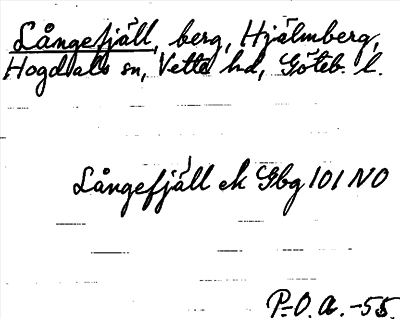 Långefjäll, berg, Hjälmberg,
Hogdals sn, Vette hd, Göteb. l.
Långefjäll ek Gbg 101 NO
P.O.A. -55.